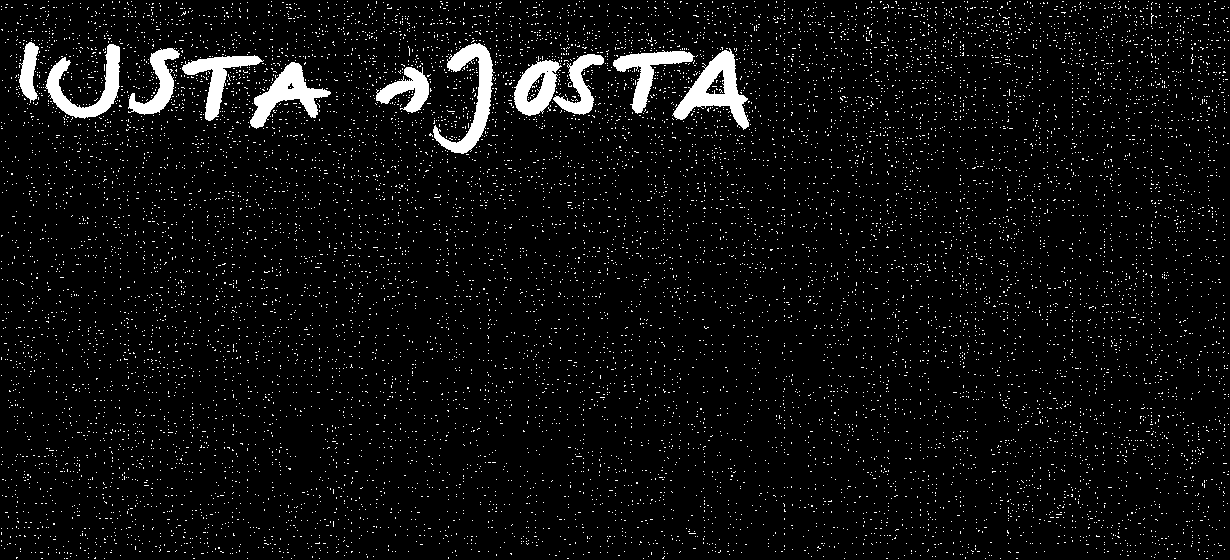 IUSTA → JOSTA